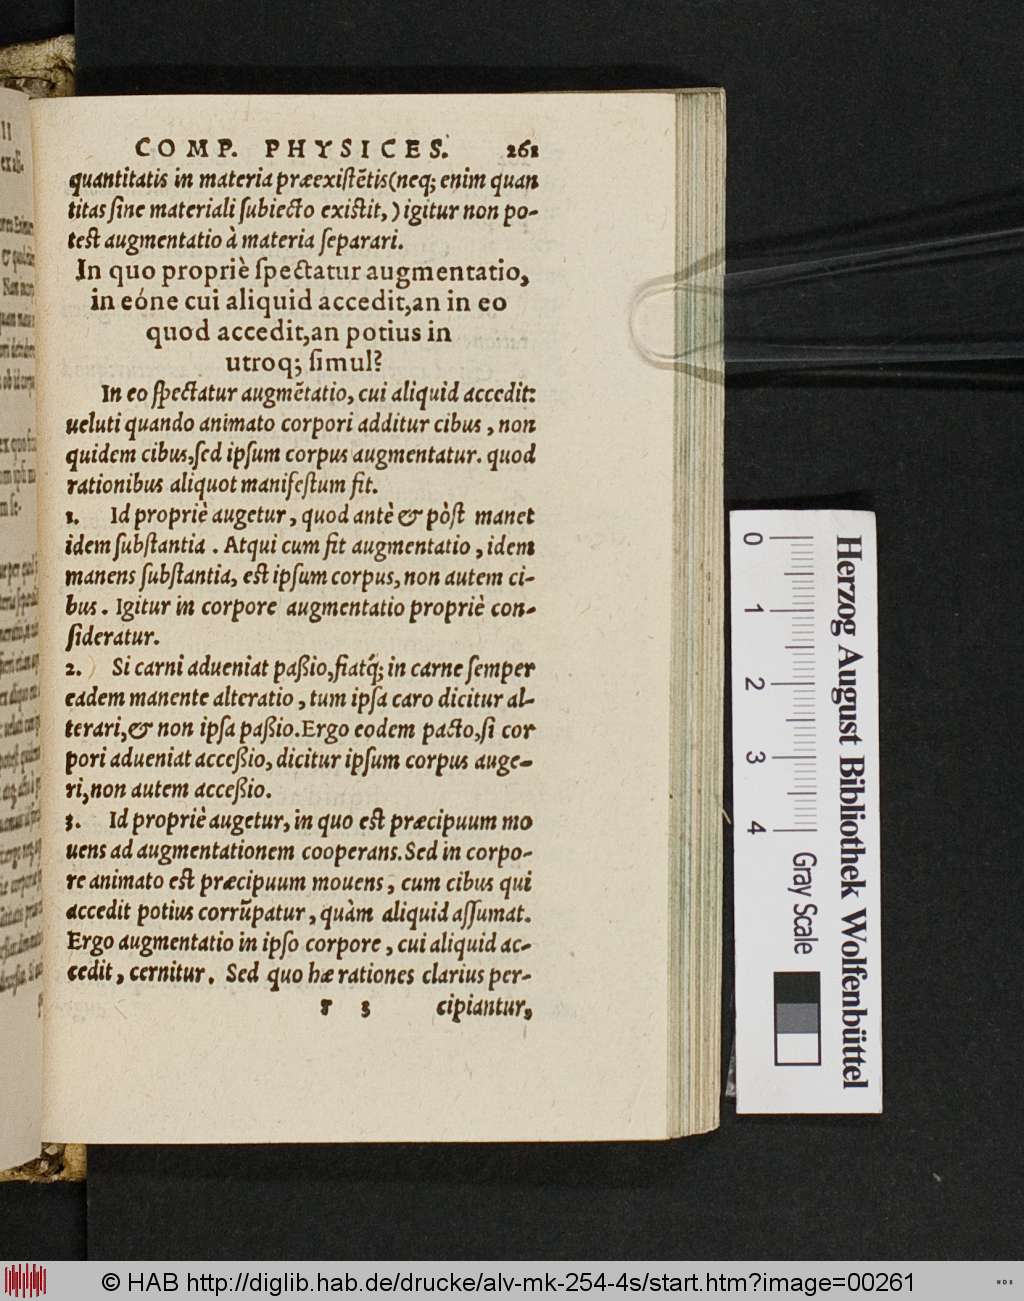 COMP. PHYSICES. 261
quantitatis in materia præexistẽtis(neq; enim quan
titas sine materiali subiecto existit,) igitur non po-
test augmentatio à materia separari.
In quo propriè spectatur augmentatio,
in eóne cui aliquid accedit,an in eo
quod accedit,an potius in
utroq; simul?
In eo spectatur augmẽtatio, cui aliquid accedit:
ueluti quando animato corpori additur cibus, non
quidem cibus,sed ipsum corpus augmentatur. quod
rationibus aliquot manifestum fit.
1. Id propriè augetur, quod antè & pòst manet
idem substantia. Atqui cum fit augmentatio, idem
manens substantia, est ipsum corpus, non autem ci-
bus. Igitur in corpore augmentatio propriè con-
sideratur.
2. Si carni adueniat paßio,fiatq́; in carne semper
eadem manente alteratio, tum ipsa caro dicitur al-
terari,& non ipsa paßio.Ergo eodem pacto,si cor
pori adueniat acceßio, dicitur ipsum corpus auge-
ri,non autem acceßio.
3. Id propriè augetur, in quo est præcipuum mo
uens ad augmentationem cooperans.Sed in corpo-
re animato est præcipuum mouens, cum cibus qui
accedit potius corrũpatur, quàm aliquid assumat.
Ergo augmentatio in ipso corpore, cui aliquid ac-
cedit, cernitur. Sed quo hæ rationes clarius per-
r 3 cipiantur,
Herzog August Bibliothek Wolfenbüttel
0 1 2 3 4 Gray Scale
© HAB http://diglib.hab.de/drucke/alv-mk-254-4s/start.htm?image=00261